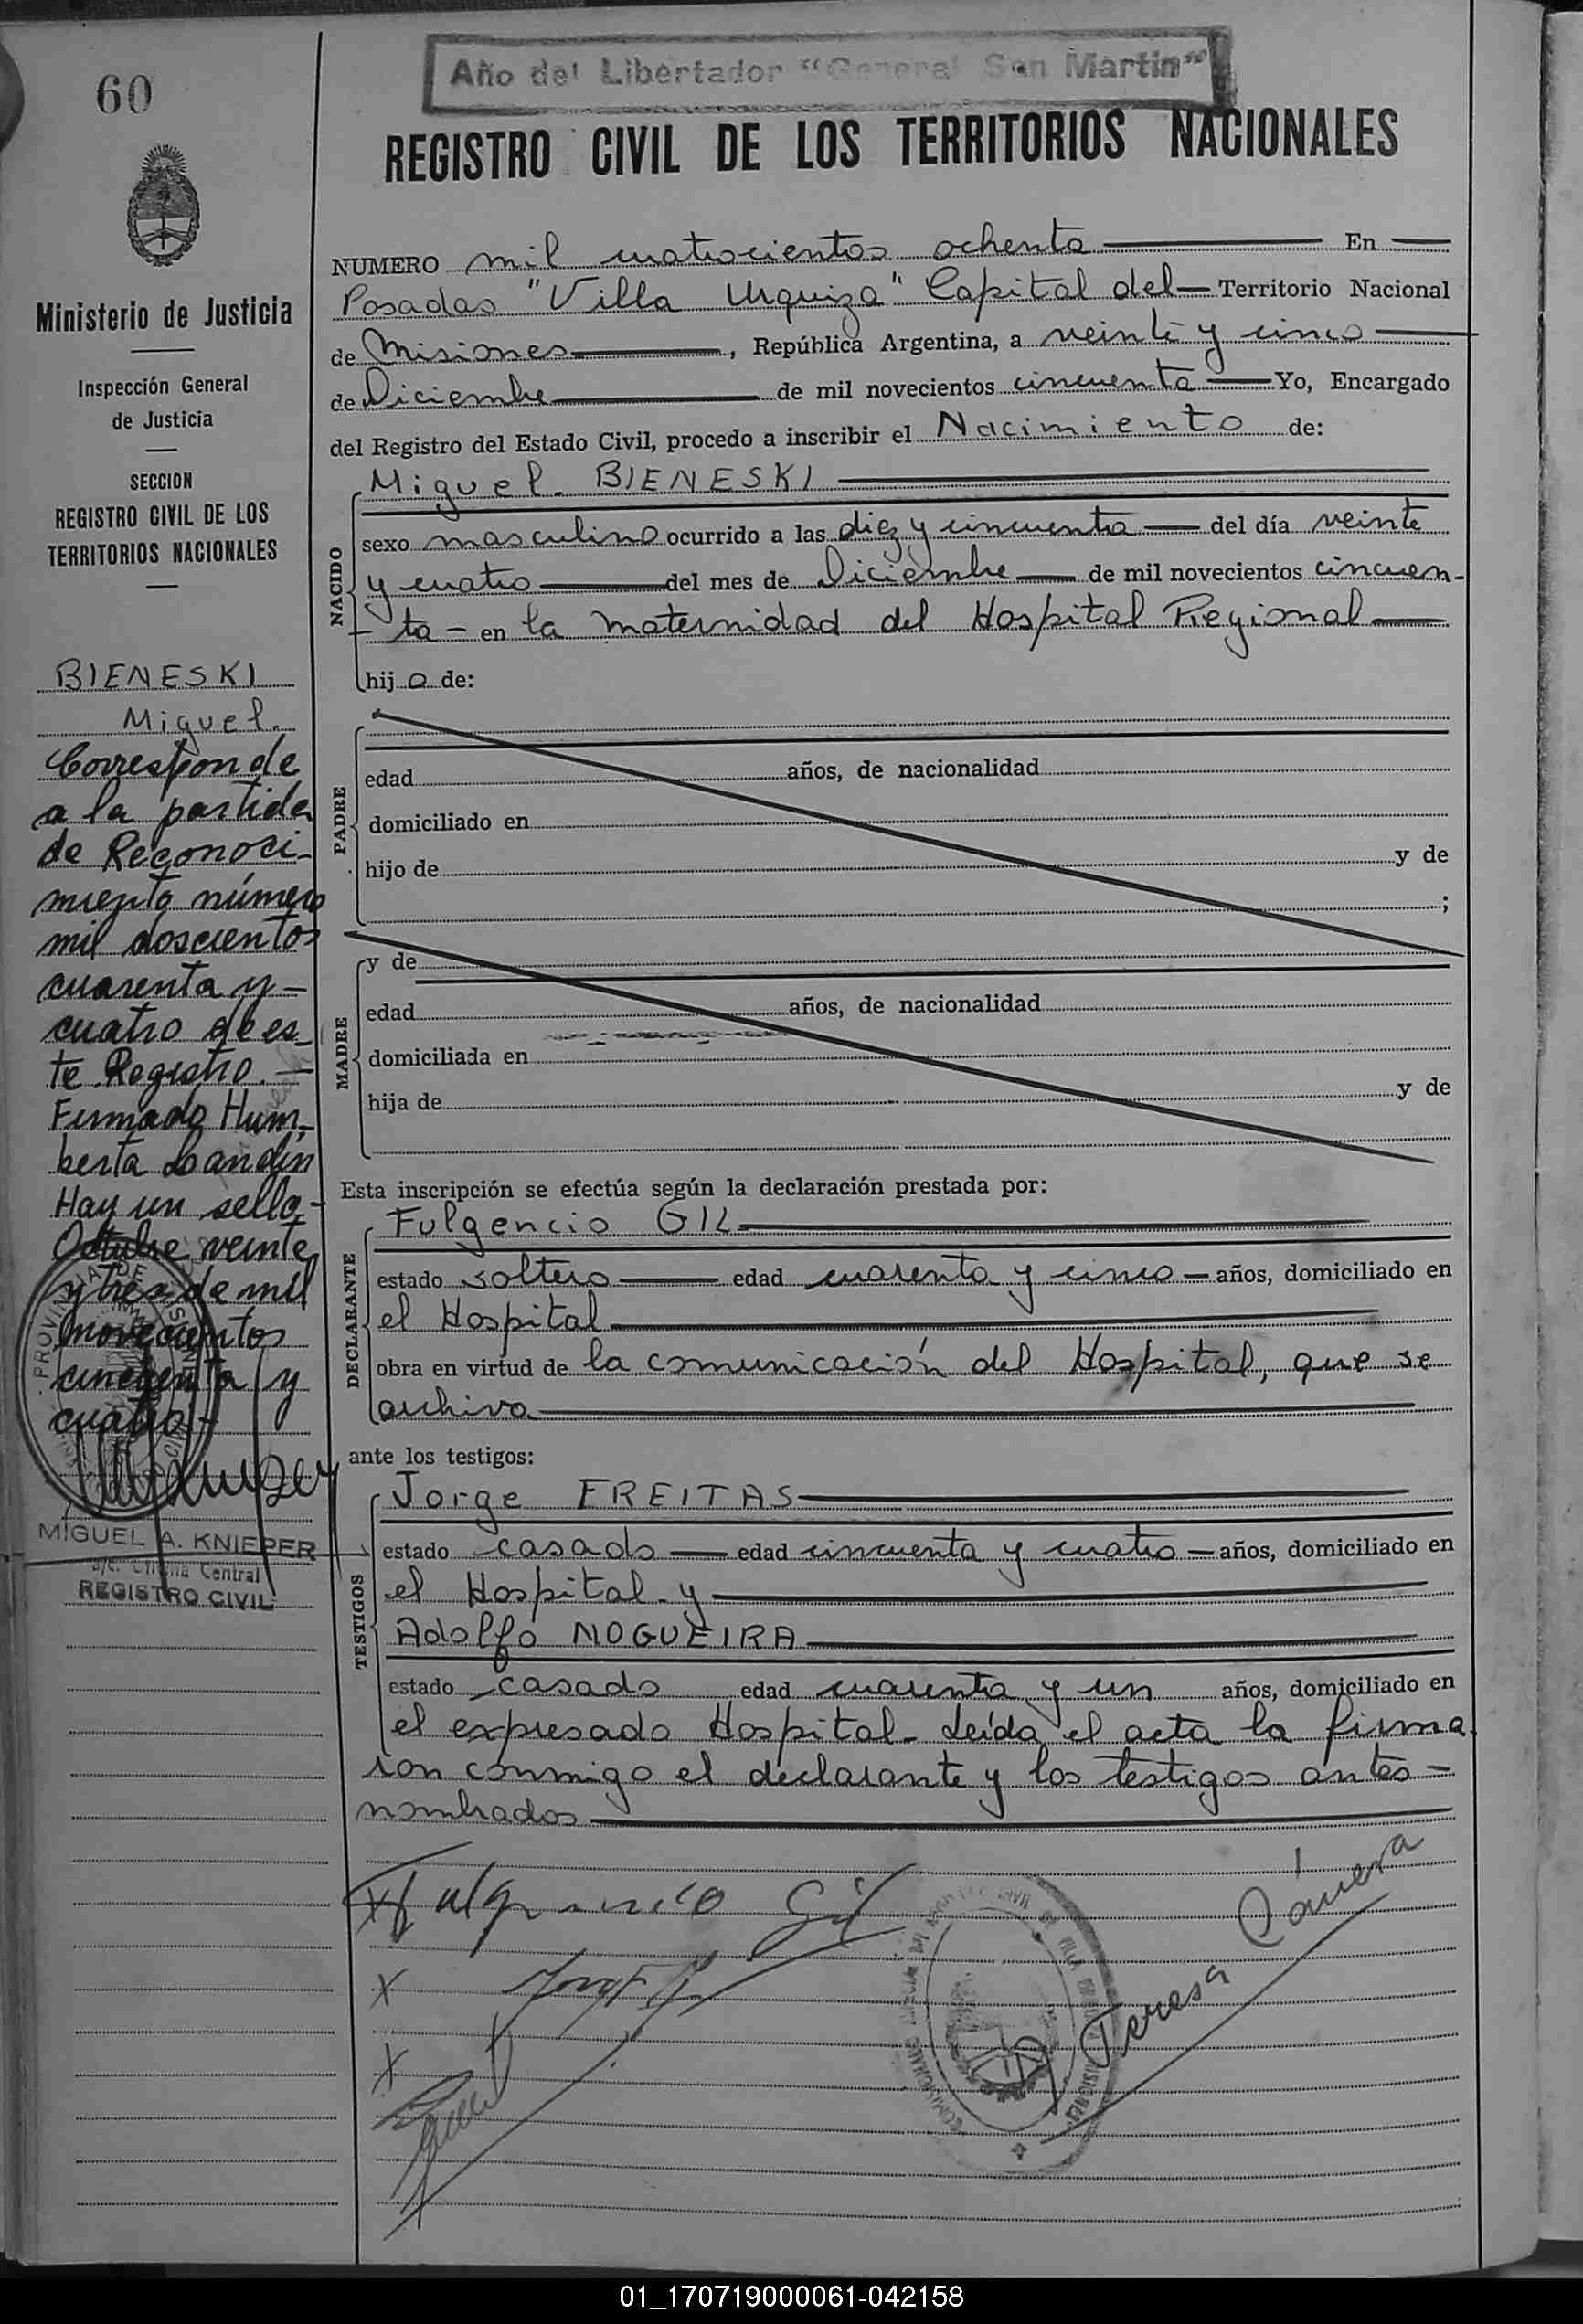 60
Año del Libertador "General San Martin"
REGISTRO CIVIL DE LOS TERRITORIOS NACIONALES
Ministerio de Justicia
Inspección General
de Justicia
SECCION
REGISTRO CIVIL DE LOS
TERRITORIOS NACIONALES
BIENESKI
Miguel.
Corresponde
a la partida
de Reconoci-
miento número
mil doscientos
cuarenta y-
cuatro de es-
te Registro.-
Firmado Hum-
berta Landin
Hay un sello-
Octubre veinte
y tres de mil
novecientos
cincuenta y
cuatro-
MIGUEL A. KNIEPER
a/c. Oficina Central
REGISTRO CIVIL
NUMERO mil cuatrocientos ochenta En
Posadas "Villa Urquiza" Capital del Territorio Nacional
de Misiones, República Argentina, a veinte y cinco
de Diciembre de mil novecientos cincuenta Yo, Encargado
del Registro del Estado Civil, procedo a inscribir el Nacimiento de:
NACIDO
Miguel. BIENESKI
sexo masculino ocurrido a las diez y cincuenta del día veinte
y cuatro del mes de Diciembre de mil novecientos cincuen-
ta - en la maternidad del Hospital Regional
hijo de:
PADRE
edad años, de nacionalidad
domiciliado en
hijo de y de
;
MADRE
y de
edad años, de nacionalidad
domiciliada en
hija de y de
Esta inscripción se efectúa según la declaración prestada por:
DECLARANTE
Fulgencio GIL
estado soltero edad cuarenta y cinco años, domiciliado en
el Hospital
obra en virtud de la comunicación del Hospital, que se
archiva
ante los testigos:
TESTIGOS
Jorge FREITAS
estado casado edad cincuenta y cuatro años, domiciliado en
el Hospital - y
Adolfo NOGUEIRA
estado casado edad cuarenta y un años, domiciliado en
el expresado Hospital - Leída el acta la firma
ron conmigo el declarante y los testigos antes-
nombrados
x Fulgencio Gil
x
x
Teresa
01_170719000061-042158